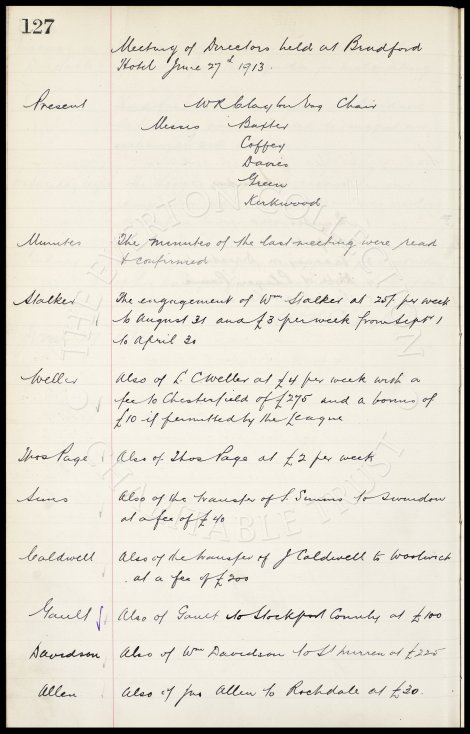 127
Meeting of Directors held at Bradford
Hotel June 27th 1913.
Present W R Clayton Esq Chair
Messrs Baxter
Coffey
Davies
Green
Kirkwood
Minutes The minutes of the last meeting were read
& confirmed
Stalker The engagement of Wm Stalker at 25/- per week
to August 31 and £3 per week from Sept 1
to April 30
Weller Also of L C Weller at £4 per week with a
fee to Chesterfield of £275 and a bonus of
£10 if permitted by the League
Thos Page Also of Thos Page at £2 per week
Simms Also of the transfer of S. Simms to Swindon
at a fee of £40
Caldwell Also of the transfer of J Caldwell to Woolwich
at a fee of £200
Gault Also of Gault to Stockport County at £100
Davidson Also of Wm Davidson to St Mirren at £225
Allen Also of Jno Allen to Rochdale at £30.
THE EVERTON COLLECTION
CHARITABLE TRUST